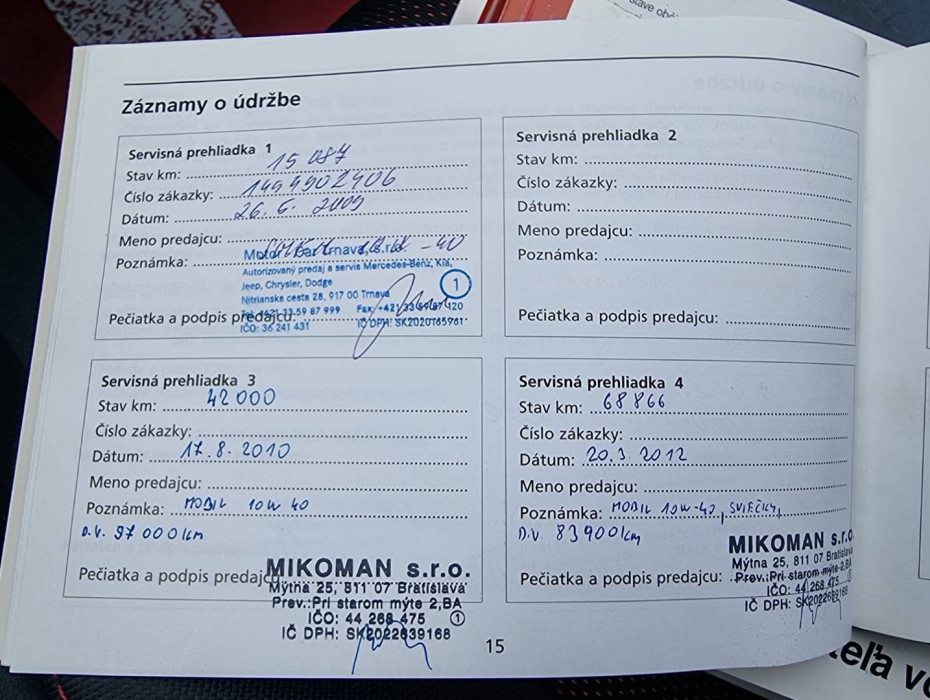 Záznamy o údržbe
Servisná prehliadka 1
Stav km: 15 087
Číslo zákazky: 1494902406
Dátum: 26. 6. 2009
Meno predajcu:
Poznámka: -40
Motor-Car Trnava, s.r.o.
Autorizovaný predaj a servis Mercedes-Benz, Kia,
Jeep, Chrysler, Dodge
Nitrianska cesta 28, 917 00 Trnava
1
Pečiatka a podpis predajcu:
IČO: 36 241 431 IČ DPH: SK2020165961
Servisná prehliadka 2
Stav km:
Číslo zákazky:
Dátum:
Meno predajcu:
Poznámka:
Pečiatka a podpis predajcu:
Servisná prehliadka 3
Stav km: 42 000
Číslo zákazky:
Dátum: 17. 8. 2010
Meno predajcu:
Poznámka: MOBIL 10W 40
D.V. 57 000km
Pečiatka a podpis predajcu
MIKOMAN s.r.o.
Mýtna 25, 811 07 Bratislava
Prev.:Pri starom mýte 2,BA
IČO: 44 268 475 1
IČ DPH: SK2022639168
Servisná prehliadka 4
Stav km: 68 866
Číslo zákazky:
Dátum: 20.3. 2012
Meno predajcu:
Poznámka: MOBIL 10W-40, SVIEČKY,
D.V. 83900km
Pečiatka a podpis predajcu:
MIKOMAN s.r.o.
Mýtna 25, 811 07 Bratislava
Prev.:Pri starom mýte 2,BA
IČO: 44 268 475
IČ DPH: SK2022639168
15